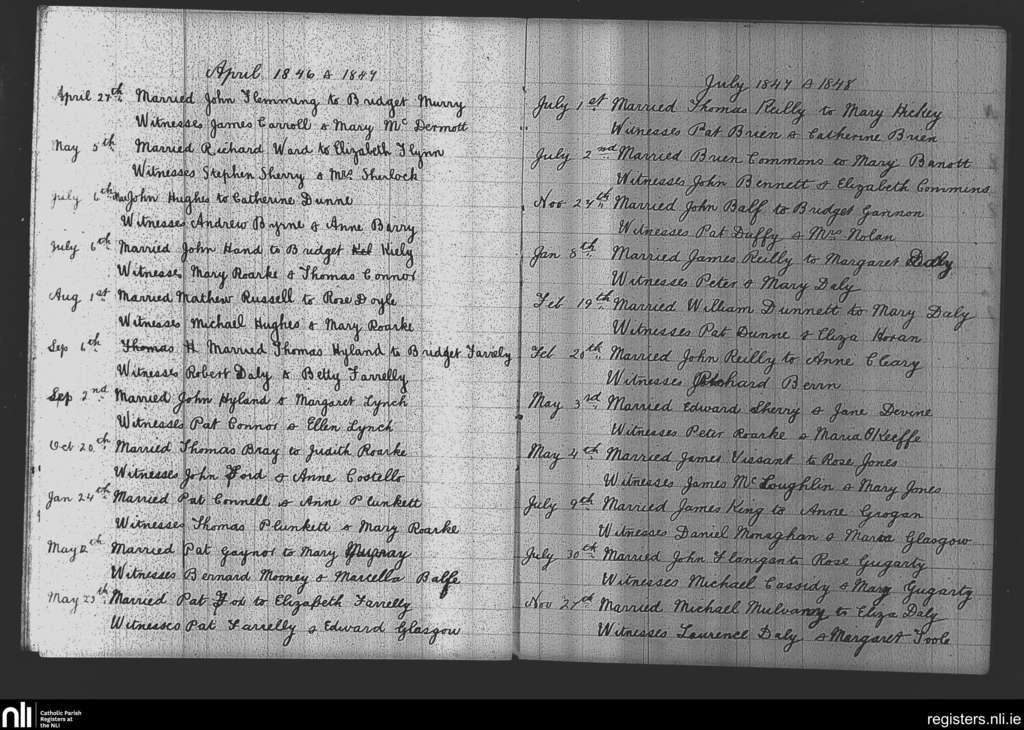 April 1846 & 1847
April 27th Married John Flemming to Bridget Murry
Witnesses James Carroll & Mary Mc Dermott
May 5th Married Richard Ward to Elizabeth Flynn
Witnesses Stephen Sherry & Mrs Sherlock
July 6th Mar John Hughes to Catherine Dunne
Witnesses Andrew Byrne & Anne Barry
July 6th Married John Hand to Bridget Kiely
Witnesses Mary Roarke & Thomas Connor
Aug 1st Married Mathew Russell to Rose Doyle
Witnesses Michael Hughes & Mary Roarke
Sep 6th Thomas H Married Thomas Hyland to Bridget Farrely
Witnesses Robert Daly & Betty Farrelly
Sep 2nd Married John Hyland & Margaret Lynch
Witnesses Pat Connor & Ellen Lynch
Oct 20th Married Thomas Bray to Judith Roarke
Witnesses John Ford & Anne Costello
Jan 24th Married Pat Connell & Anne Plunkett
Witnesses Thomas Plunkett & Mary Roarke
May th Married Pat Gaynor to Mary Murray
Witnesses Bernard Mooney & Marcella Balfe
May 23th Married Pat Fox to Elizabeth Farrelly
Witnesses Pat Farrelly & Edward Glasgow
July 1847 & 1848
July 1st Married Thomas Reilly to Mary Hickey
Witnesses Pat Brien & Catherine Brien
July 2nd Married Brien Commons to Mary Banott
Witnesses John Bennett & Elizabeth Commins
Nov 27th Married John Balf to Bridget Gannon
Witnesses Pat Duffy & Mrs Nolan
Jan 8th Married James Reilly to Margaret Daly
Witnesses Peter & Mary Daly
Feb 19th Married William Dunnett to Mary Daly
Witnesses Pat Dunne & Eliza Horan
Feb 20th Married John Reilly to Anne Cleary
Witnesses Richard Berrn
May 3rd Married Edward Sherry & Jane Devine
Witnesses Peter Roarke & Maria O'Keeffe
May 4th Married James Vissant to Rose Jones
Witnesses James Mc Loughlin & Mary Jones
July 9th Married James King to Anne Grogan
Witnesses Daniel Monaghan & Maria Glasgow
July 30th Married John Flanigan to Rose Gugarty
Witnesses Michael Cassidy & Mary Gugarty
Nov 27th Married Michael Mulvanny to Eliza Daly
Witnesses Laurence Daly & Margaret Toole
nli Catholic Parish
Registers at
the NLI
registers.nli.ie